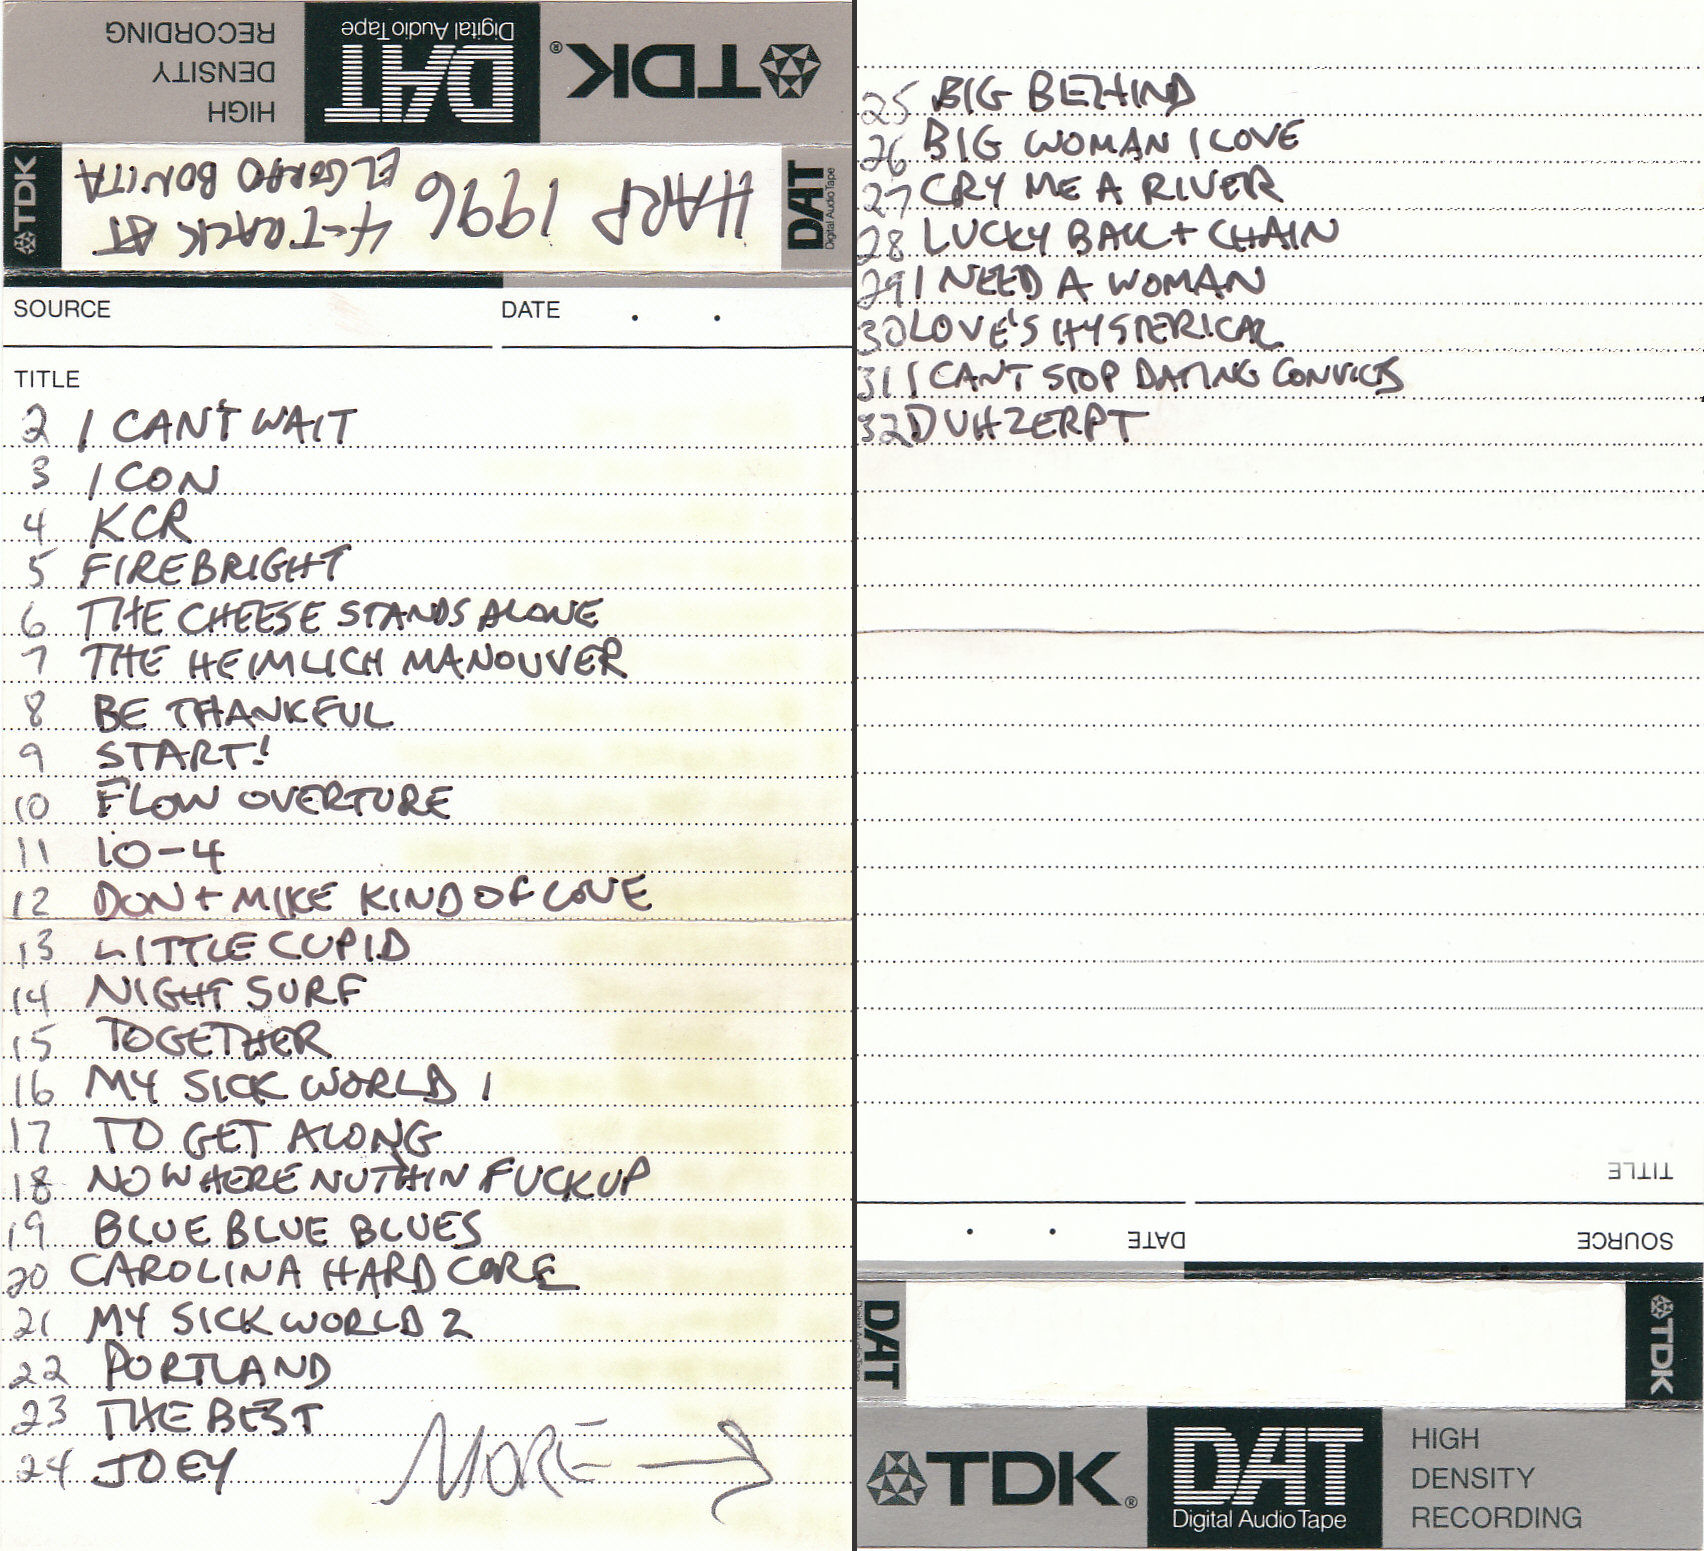 HIGH
DENSITY
RECORDING
DAT
Digital Audio Tape
TDK®
TDK
HARP 1996
4-TRACK AT
EL GORDO BONITA
DAT
Digital Audio Tape
SOURCE
DATE . .
TITLE
2 I CAN'T WAIT
3 ICON
4 KCR
5 FIREBRIGHT
6 THE CHEESE STANDS ALONE
7 THE HEIMLICH MANOUVER
8 BE THANKFUL
9 START!
10 FLOW OVERTURE
11 10-4
12 DON + MIKE KIND OF LOVE
13 LITTLE CUPID
14 NIGHT SURF
15 TOGETHER
16 MY SICK WORLD 1
17 TO GET ALONG
18 NOWHERE NUTHIN FUCKUP
19 BLUE BLUE BLUES
20 CAROLINA HARD CORE
21 MY SICK WORLD 2
22 PORTLAND
23 THE BEST
24 JOEY
MORE →
25 BIG BEHIND
26 BIG WOMAN I LOVE
27 CRY ME A RIVER
28 LUCKY BALL + CHAIN
29 I NEED A WOMAN
30 LOVE'S HYSTERICAL
31 I CAN'T STOP DATING CONVICTS
32 DUHZERPT
TITLE
SOURCE
DATE . .
DAT
Digital Audio Tape
TDK
TDK®
DAT
Digital Audio Tape
HIGH
DENSITY
RECORDING